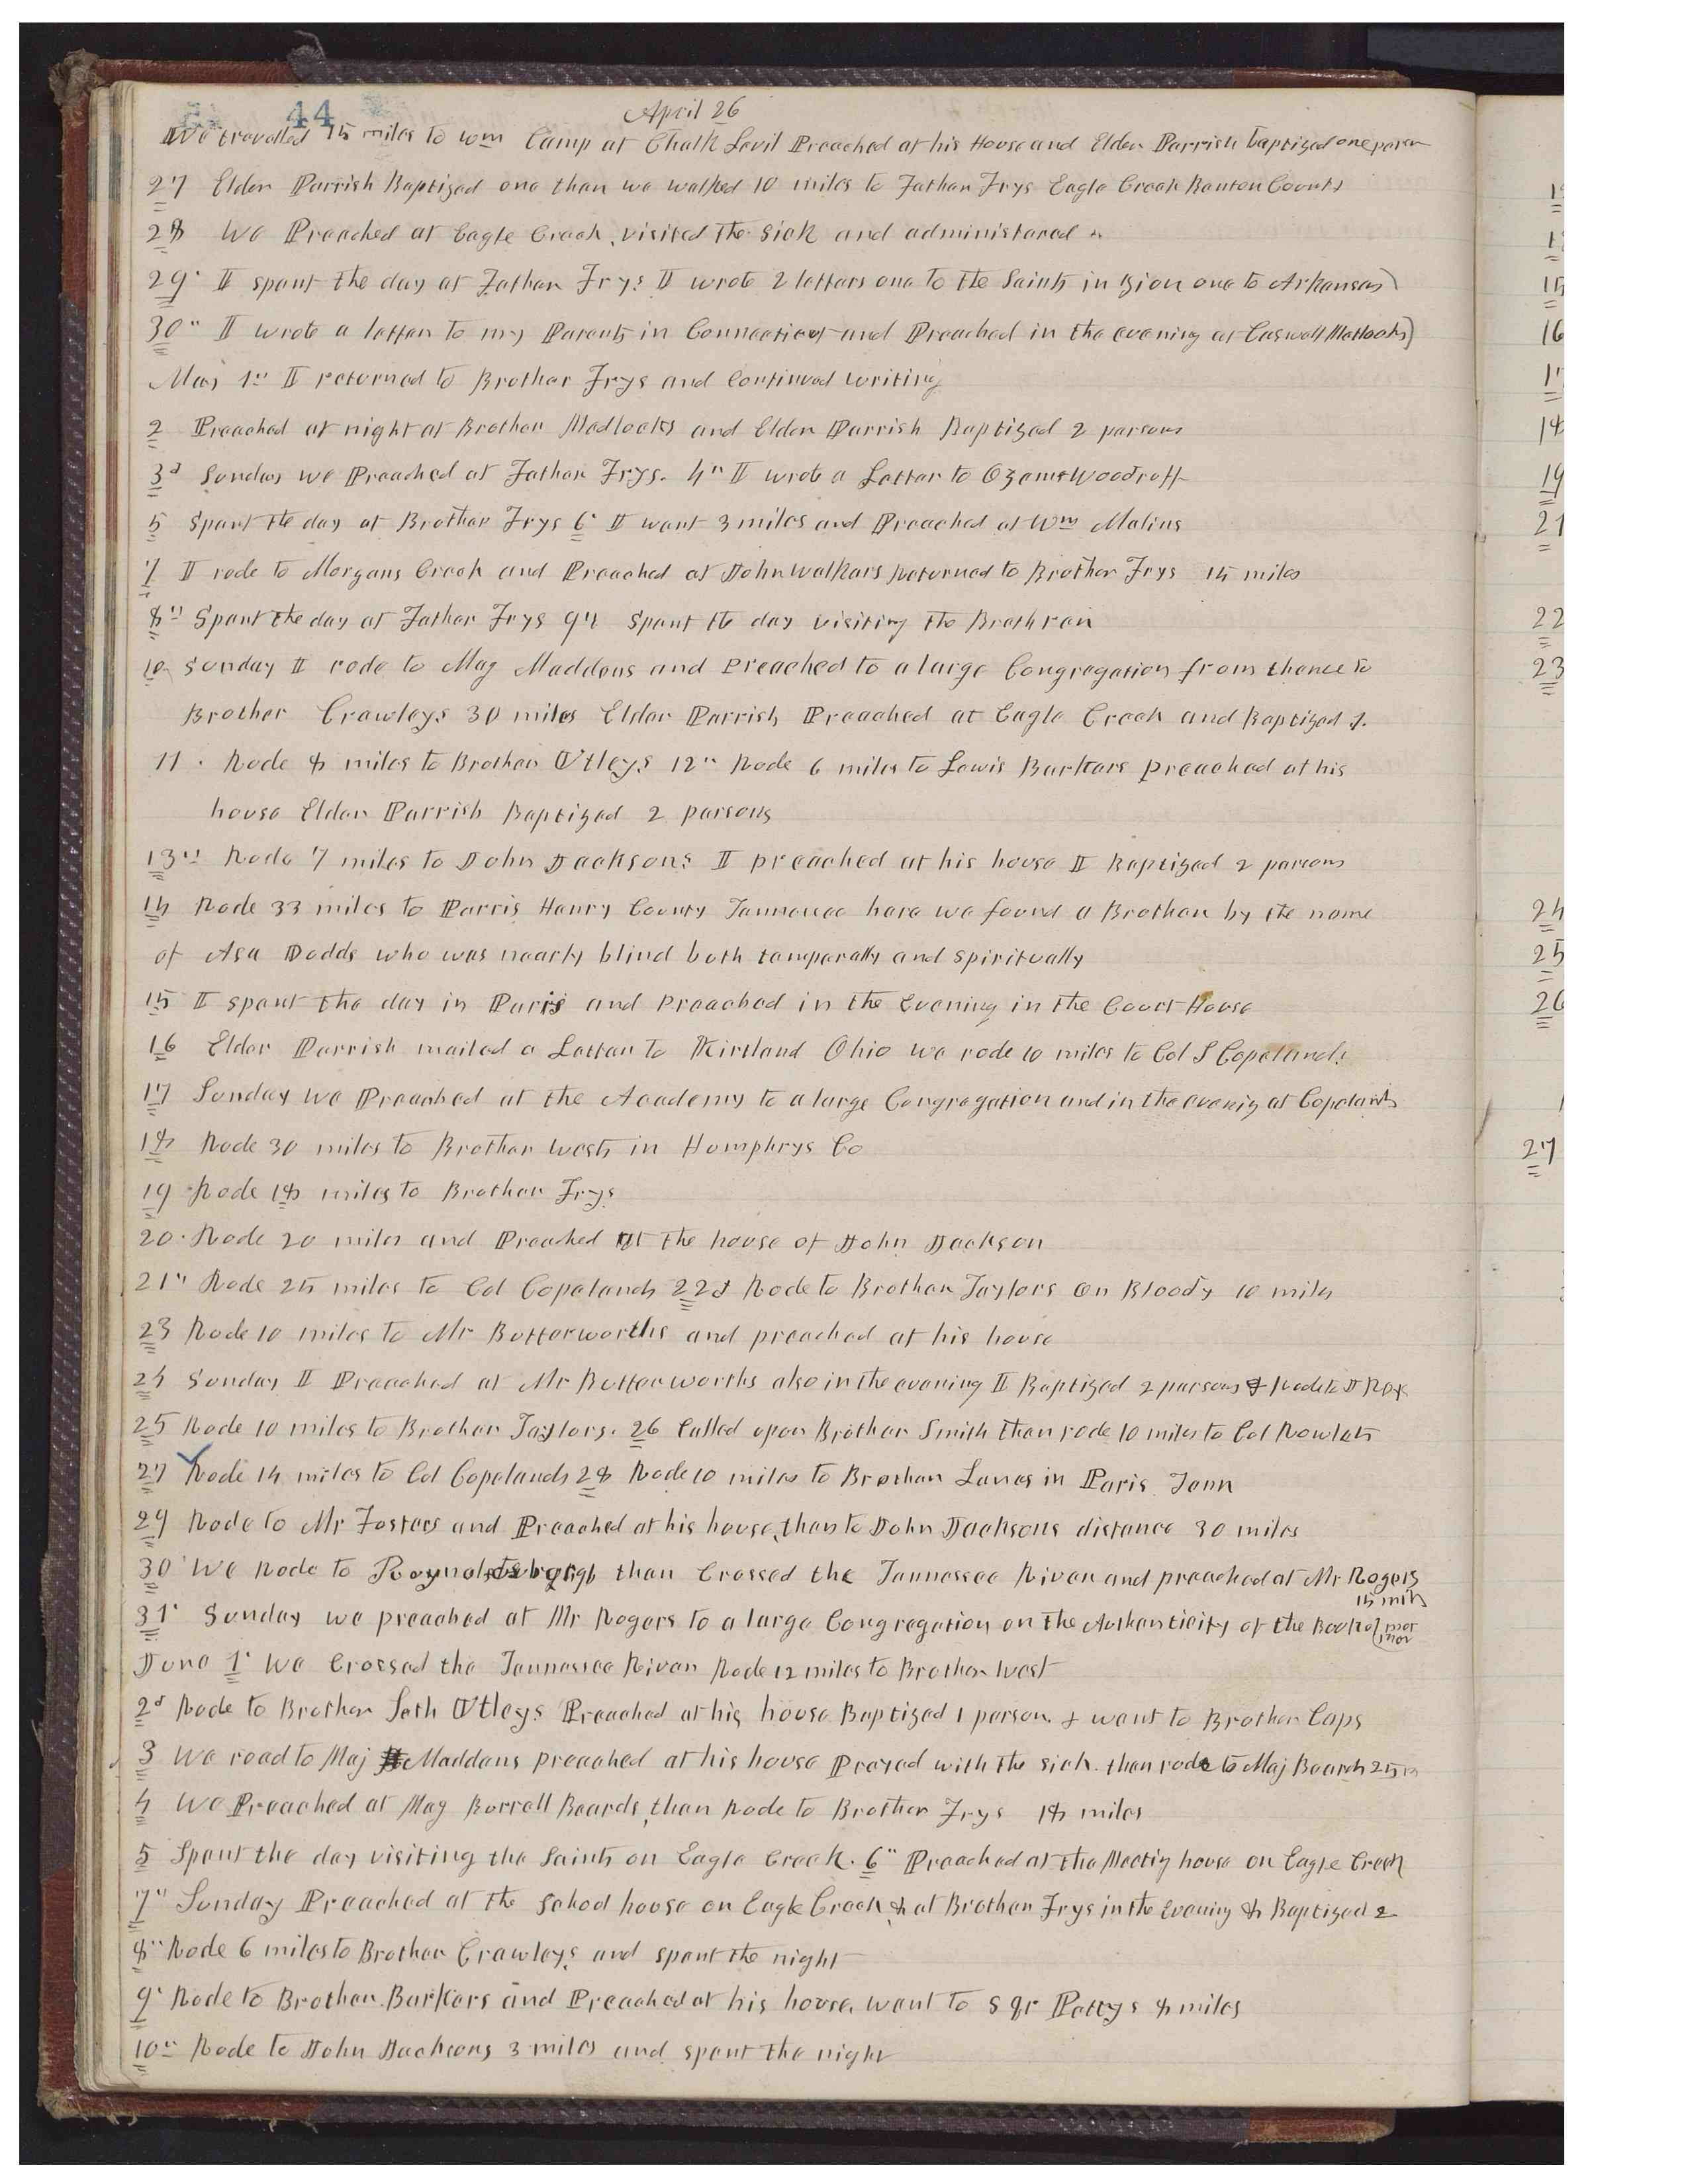 44
April 26
We travelled 15 miles to Wm Camp at Chalk Levil Preached at his House and Elder Parrish baptized one person
27 Elder Parrish Baptized one then we walked 10 miles to Father Frys Eagle Creek Benton County
28 We Preached at Eagle Creek, visited the sick and administered
29 I spent the day at Father Frys I wrote 2 letters one to the Saints in Zion one to Arkansas
30" I wrote a letter to my Parents in Connecticut and Preached in the evening at Caswell Matlocks
May 1st I returned to Brother Frys and continued writing
2 Preached at night at Brother Medlocks and Elder Parrish Baptized 2 persons
3d Sunday we Preached at Father Frys. 4" I wrote a Letter to Ozem Woodruff
5 Spent the day at Brother Frys 6 I went 3 miles and Preached at Wm Malins
7 I rode to Morgans Creek and Preached at John Walkers Returned to Brother Frys 15 miles
8" Spent the day at Father Frys 9" Spent the day visiting the Brethren
10 Sunday I rode to Mag Maddens and Preached to a large Congregation from thence to
Brother Crawleys 30 miles Elder Parrish Preached at Eagle Creek and Baptized 1.
11. Rode 8 miles to Brother Utleys 12" Rode 6 miles to Lewis Barkers preached at his
house Elder Parrish Baptized 2 persons
13" Rode 7 miles to John Jacksons I preached at his house I Baptized 2 persons
14 Rode 33 miles to Parris Henry County Tennessee here we found a Brother by the name
of Asa Dodds who was nearly blind both temperally and spiritually
15 I spent the day in Paris and Preached in the Evening in the Court House
16 Elder Parrish mailed a Letter to Kirtland Ohio we rode 10 miles to Col S Copelands
17 Sunday we Preached at the Academy to a large Congregation and in the evenig at Copelands
18 Rode 30 miles to Brother Wests in Homphrys Co
19 Rode 18 miles to Brother Frys
20. Rode 20 miles and Preached at the house of John Jackson
21" Rode 25 miles to Col Copelands 22d Rode to Brother Taylors on Bloody 10 miles
23 Rode 10 miles to Mr Butterworths and preached at his house
24 Sunday I Preached at Mr Butterworths also in the evening I Baptized 2 persons & Rode to
25 Rode 10 miles to Brother Taylors. 26 Called upon Brother Smith then rode 10 miles to Col Rowlets
27 Rode 14 miles to Col Copelands 28 Rode 10 miles to Brother Lanes in Paris Tenn
29 Rode to Mr Fosters and Preached at his house, then to John Jacksons distance 30 miles
30 We Rode to Reynoldsburgh then Crossed the Tennessee River and preached at Mr Rogers
15 mls
31 Sunday we preached at Mr Rogers to a large Congregation on the Authenticity of the Book of Mor
mon
June 1 We Crossed the Tennessee River Rode 12 miles to Brother West
2d Rode to Brother Seth Utleys Preached at his house Baptized 1 person. & went to Brother Caps
3 We road to Maj Maddens preached at his house Prayed with the sick. then rode to Maj Beards 25 m
4 We Preached at Mag Borrell Beards, then Rode to Brother Frys 18 miles
5 Spent the day visiting the Saints on Eagle Creek. 6" Preached at the Meetig house on Eagle Creek
7" Sunday Preached at the School house on Eagle Creek, & at Brother Frys in the Evening & Baptized 2
8" Rode 6 miles to Brother Crawleys and spent the night
9 Rode to Brother Barkers and Preached at his house, went to Sqr Pettys 8 miles
10" Rode to John Jacksons 3 miles and spent the night
16
19
21
22
23
24
25
26
27